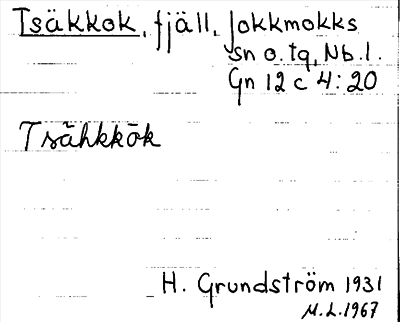 Tsäkkok, fjäll, Jokkmokks
sn o. tg, Nb. l.
Gn 12 c 4:20
Tsähkkōk
H. Grundström 1931
M.L. 1967